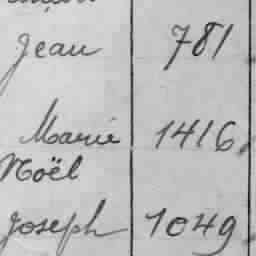 Jean 781
Marie 1416
Noël
Joseph 1049